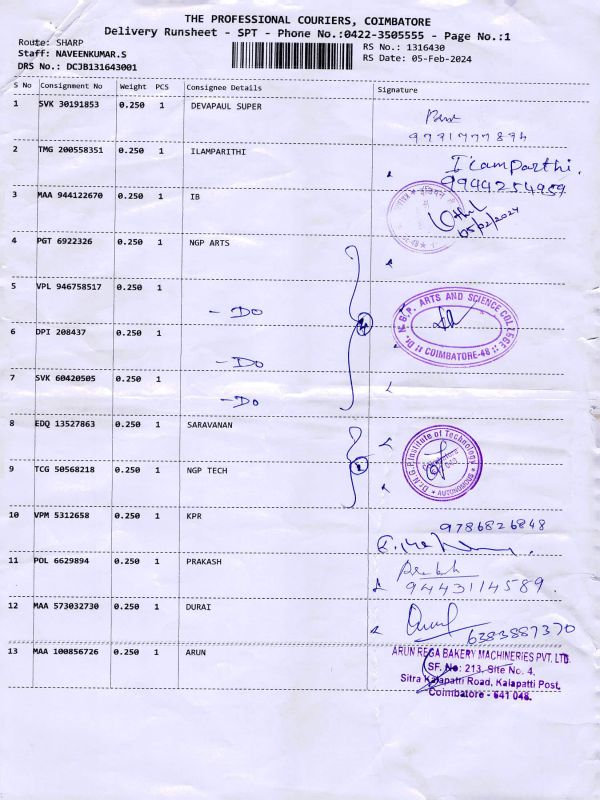 THE PROFESSIONAL COURIERS, COIMBATORE
Delivery Runsheet - SPT - Phone No.:0422-3505555 - Page No.:1
Route: SHARP
Staff: NAVEENKUMAR.S
DRS No.: DCJB131643001
RS No.: 1316430
RS Date: 05-Feb-2024
S No Consignment No Weight PCS Consignee Details Signature
1 SVK 30191853 0.250 1 DEVAPAUL SUPER
2 TMG 200558351 0.250 1 ILAMPARITHI
Ilamparthi.
9944254959
3 MAA 944122670 0.250 1 IB
05/02/2024
4 PGT 6922326 0.250 1 NGP ARTS
5 VPL 946758517 0.250 1
- DO
Dr. N.G.P. ARTS AND SCIENCE COLLEGE
COIMBATORE-48
6 DPI 208437 0.250 1
- DO
7 SVK 60420505 0.250 1
- DO
8 EDQ 13527863 0.250 1 SARAVANAN
Dr. N.G.P. Institute of Technology
AUTONOMOUS
9 TCG 50568218 0.250 1 NGP TECH
10 VPM 5312658 0.250 1 KPR
9786826848
11 POL 6629894 0.250 1 PRAKASH
9443114589.
12 MAA 573032730 0.250 1 DURAI
6383887370
13 MAA 100856726 0.250 1 ARUN
ARUN REGA BAKERY MACHINERIES PVT. LTD.
SF. No: 213, Site No. 4,
Sitra Kalapatti Road, Kalapatti Post,
Coimbatore - 641 048.